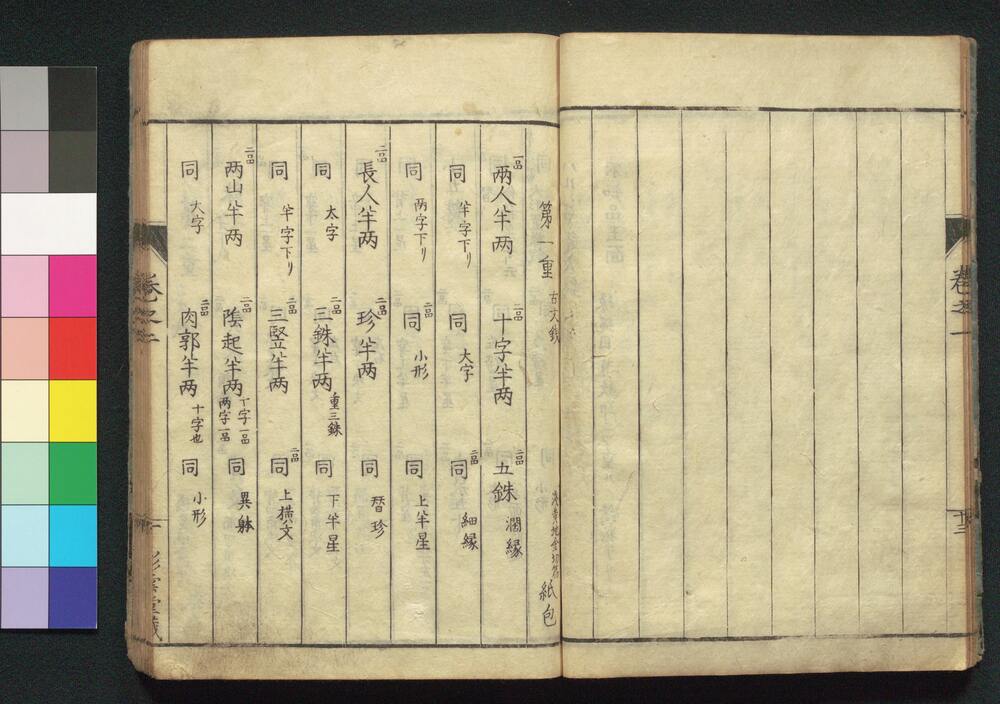 卷之一
十三
第一重 古文錢 紙包
一品 兩人半两 二品 十字半两 二品 五銖 濶縁
同 半字下リ 同 大字 二品 同 細縁
同 两字下リ 二品 同 小形 同 上半星
二品 長人半两 二品 珍半两 同 替珍
同 太字 二品 三銖半两 重三銖 同 下半星
同 半字下リ 二品 三竪半两 二品 同 上横文
二品 两山半两 二品 陰起半两 丅字一品 两字一品 同 異躰
同 大字 二品 肉郭半两 十字也 同 小形
卷之二
一